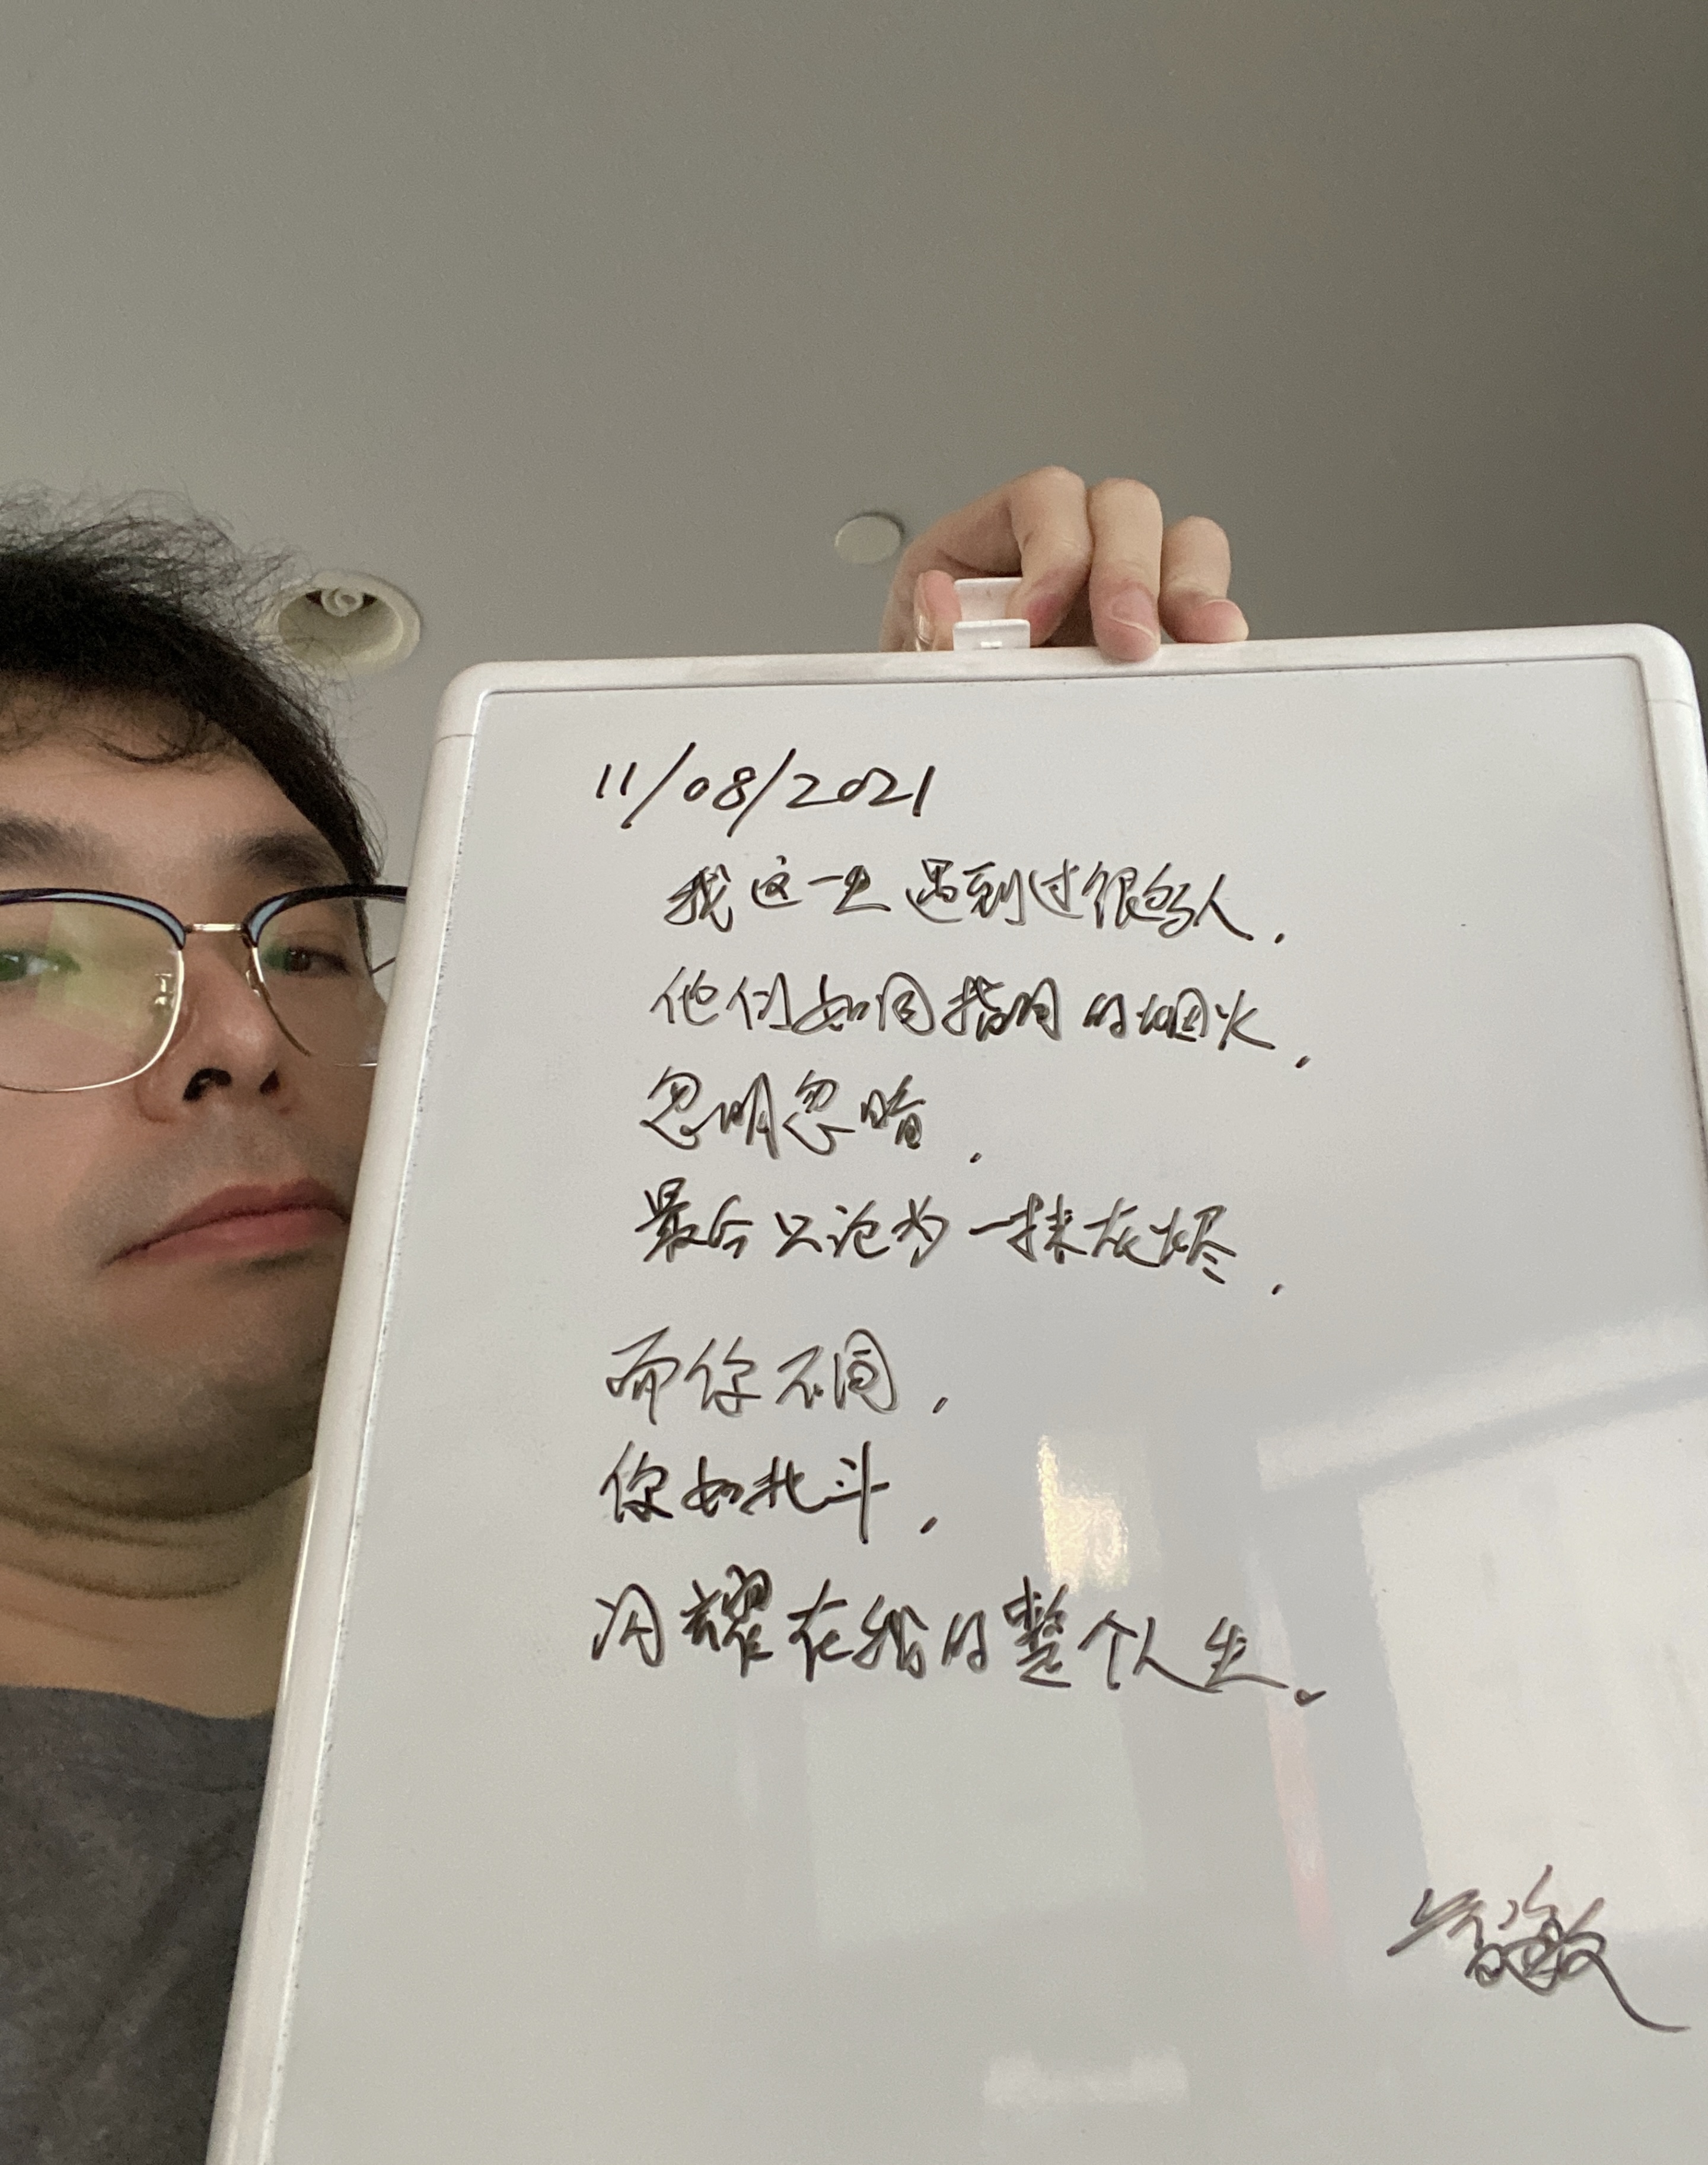 11/08/2021
我这一生遇到过很多人,
他们如同指间的烟火,
忽明忽暗,
最后只沦为一抹灰烬,
而你不同,
你如北斗,
闪耀在我的整个人生。